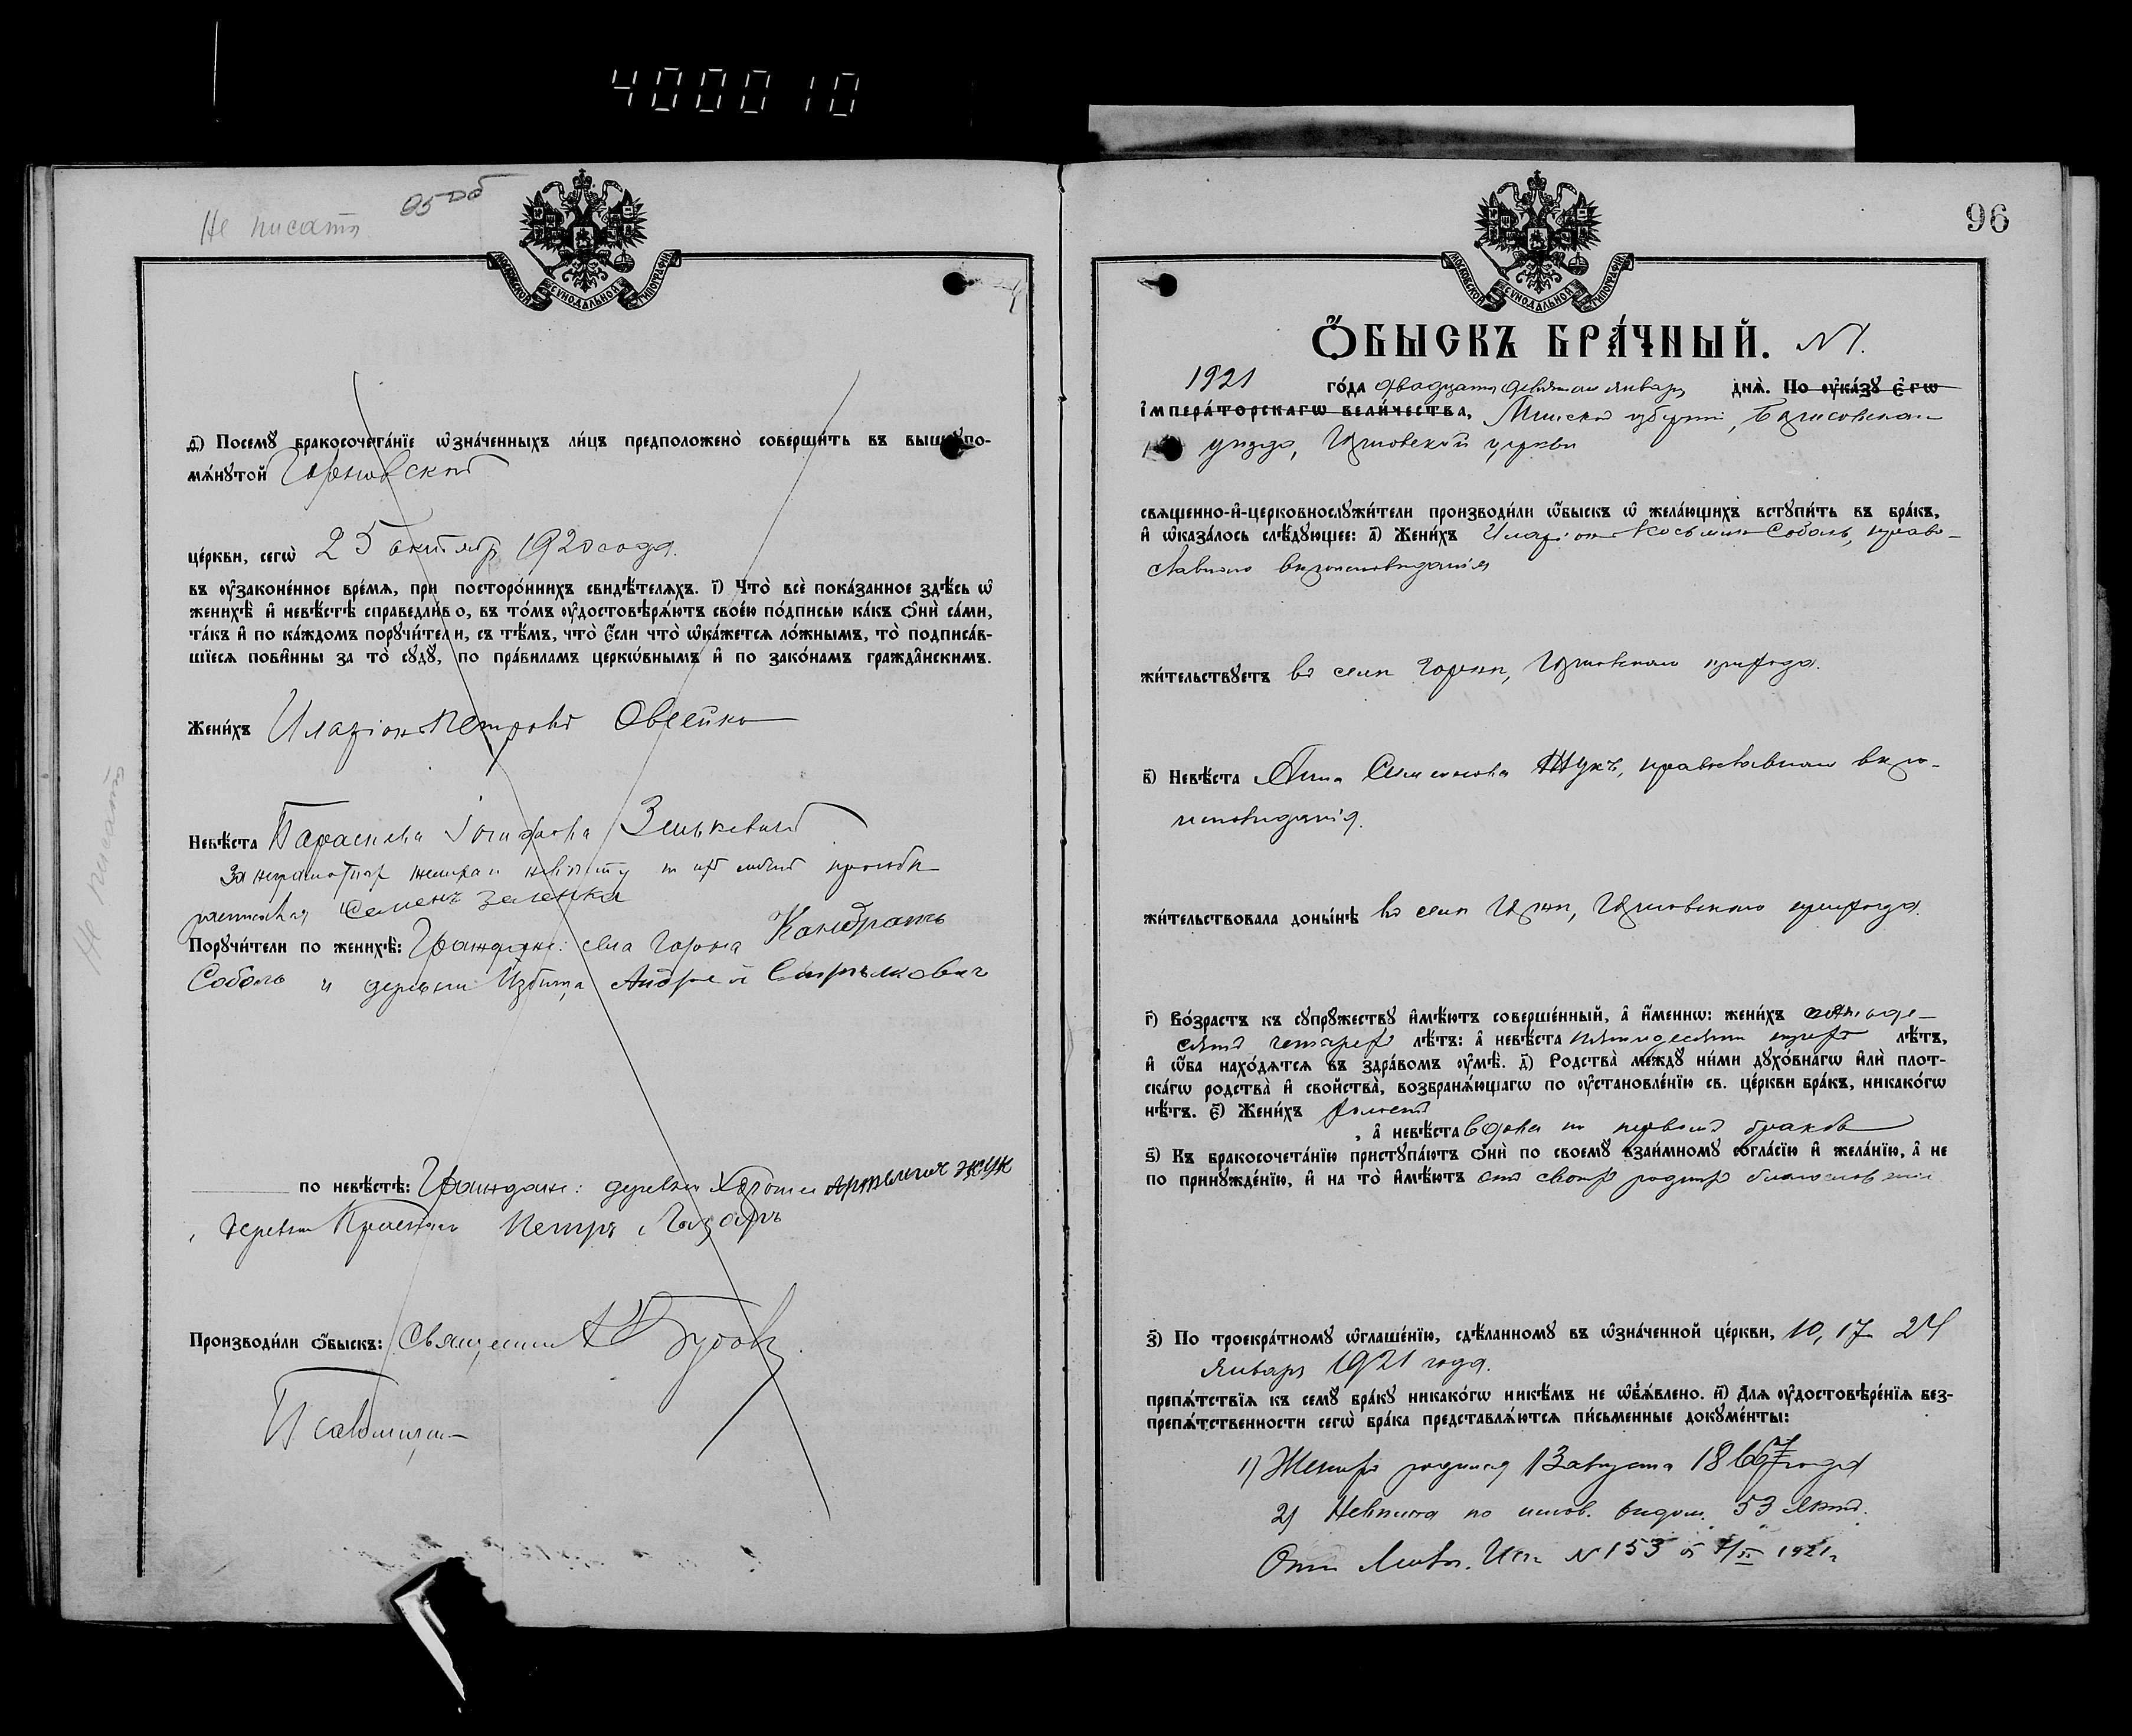 400010
Не писать
95 об
МОСКОВСКОЙ СѴНОДАЛЬНОЙ ТИПОГРАФІИ
д҃) Посемꙋ бракосочета́нїе ѡ҆зна́ченныхъ ли́цъ предположено̀ соверши́ть въ вышепо-
мѧ́нꙋтой
це́ркви, сегѡ̀ 25 октября 1920 года.
въ ᲂу҆зако́ненное вре́мѧ, при посторо́ннихъ свидѣ́телѧхъ. і҃) Что̀ всѐ пока́занное здѣ́сь ѡ҆
женихѣ̀ и҆ невѣ́стѣ справедли́во, въ то́мъ ᲂу҆достовѣрѧ́ютъ свое́ю по́дписью ка́къ ѻ҆нѝ са́ми,
та́къ и҆ по ка́ждомъ порꙋчи́тели, съ тѣ́мъ, что̀ є҆́сли что̀ ѡ҆ка́жетсѧ ло́жнымъ, то̀ подписа́в-
шїесѧ пови́нны за то̀ сꙋдꙋ̀, по пра́виламъ церко́внымъ и҆ по зако́намъ гражда́нскимъ.
Жени́хъ Иларіонъ Петровъ Овсейко
Невѣ́ста Параскева Іосифова Зенькевичъ
За неграмотныхъ жениха и невѣсту по ихъ личной просьбѣ
росписался Семенъ Зеленка
Порꙋчи́тели по женихѣ̀: Граждане: села Горокъ Кондратъ
Соболь и деревни Избища Андрей
по невѣ́стѣ: Граждане: деревни Хороши Артемій Жук
деревни Петръ Лазарь
Производи́ли ѻ҆́быскъ: Священникъ
Псаломщикъ
Не писать
96
МОСКОВСКОЙ СѴНОДАЛЬНОЙ ТИПОГРАФІИ
Ѻ҆́БЫСКЪ БРА́ЧНЫЙ. №1.
1921 го́да двадцать девятаго января днѧ̀. По ᲂу҆ка́зꙋ є҆гѡ̀
і҆мпера́торскагѡ вели́чества, Минской губерніи, Борисовскаго
уѣзда, церкви
свѧщенно-и҆-церковнослꙋжи́тели производи́ли ѡ҆́быскъ ѡ҆ жела́ющихъ встꙋпи́ть въ бра́къ,
и҆ ѡ҆каза́лось слѣ́дꙋющее: а҃) Жени́хъ Иларіонъ Косьминъ Соболь, право-
славнаго вѣроисповѣданія
жи́тельствꙋетъ въ селѣ Горкахъ, прихода.
в҃) Невѣ́ста Анна Семенова Жукъ, православнаго вѣро-
исповѣданія.
жи́тельствовала доны́нѣ въ селѣ прихода.
г҃) Во́зрастъ къ сꙋпрꙋ́жествꙋ и҆мѣ́ютъ соверше́нный, а҆ и҆́менно: жени́хъ пятиде-
сяти четырехъ лѣ́тъ: а҆ невѣ́ста пятидесяти трехъ лѣ́тъ,
и҆ ѡ҆́ба нахо́дѧтсѧ въ здра́вомъ ᲂу҆мѣ̀. д҃) Родства̀ междꙋ̀ ни́ми дꙋхо́внагѡ и҆лѝ плот-
ска́гѡ родства̀ и҆ сво́йства̀, возбранѧ́ющагѡ по ᲂу҆становле́нїю св. це́ркви бра́къ, никако́гѡ
нѣ́тъ. є҃) Жени́хъ холостъ
, а҆ невѣ́ста вдова по первомъ бракѣ
ѕ҃) Къ бракосочета́нїю пристꙋпа́ютъ ѻ҆нѝ по своемꙋ̀ взаи́мномꙋ согла́сїю и҆ жела́нїю, а҆ не
по принꙋжде́нїю, и҆ на то̀ и҆мѣ́ютъ отъ своихъ родныхъ благословеніе
з҃) По троекра́тномꙋ ѡ҆глаше́нїю, сдѣ́ланномꙋ въ ѡ҆зна́ченной це́ркви, 10, 17 24
января 1921 года.
препѧ́тствїѧ къ семꙋ̀ бра́кꙋ никако́гѡ никѣ́мъ не ѡ҆б̾ѧ́влено. и҃) Длѧ ᲂу҆достовѣре́нїѧ без-
препѧ́тственности сегѡ̀ бра́ка представлѧ́ютсѧ пи́сьменные докꙋме́нты:
1) Женихъ родился 13 августа 1867 года
2) Невѣста по испов. вѣдом. 53 лѣтъ.
№ 153 1921 г.